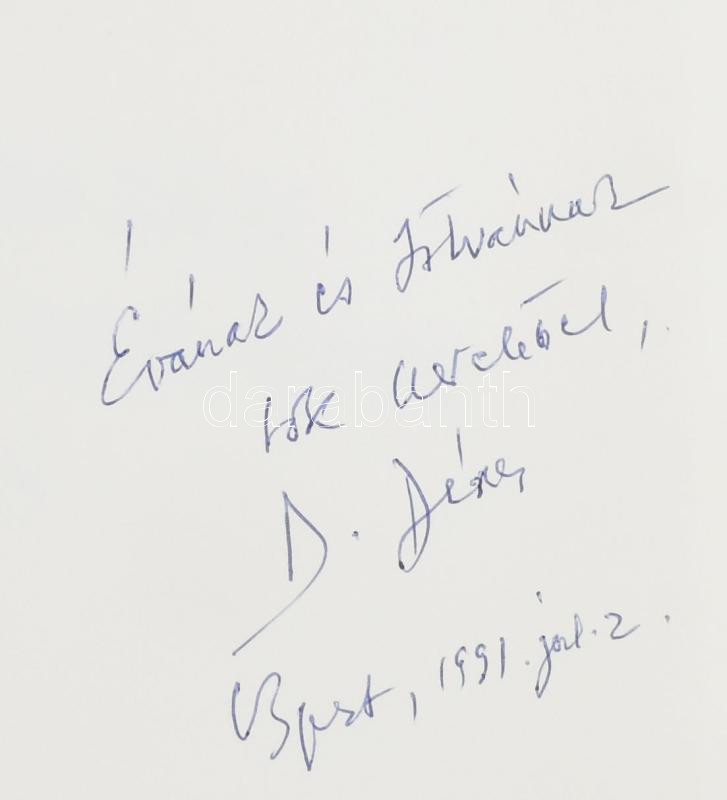 Évának és Istvánnak
sok szeretettel,
D. Dénes
Bpest, 1991. júl. 2.
darabanth